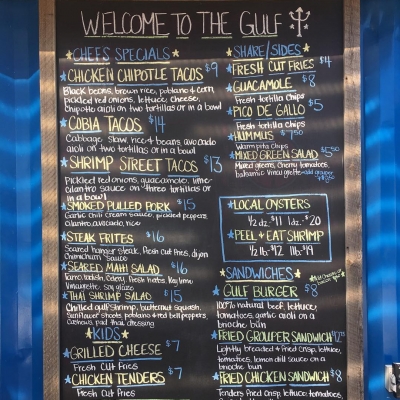 WELCOME TO THE GULF
CHEF'S SPECIALS
CHICKEN CHIPOTLE TACOS $9
Black beans, brown rice, poblano & corn,
pickled red onions, lettuce, cheese,
chipotle aioli on two tortillas or in a bowl
COBIA TACOS $14
Cabbage slaw, rice & beans, avocado
aioli on two tortillas or in a bowl
SHRIMP STREET TACOS $13
Pickled red onions, guacamole, lime-
cilantro sauce on three tortillas or
in a bowl
SMOKED PULLED PORK $15
Garlic chili cream sauce, pickled peppers,
cilantro, avocado, rice
STEAK FRITES $16
Seared hanger steak, fresh cut fries, dijon
chimichurri sauce
SEARED MAHI SALAD $16
radish, celery, fresh herbs, key lime
vinaigrette, soy glaze
THAI SHRIMP SALAD $15
Chilled gulf shrimp, butternut squash,
sunflower shoots, potatoes & red bell peppers,
cashews, pad thai dressing
KIDS
GRILLED CHEESE $7
Fresh Cut Fries
CHICKEN TENDERS $7
Fresh Cut Fries
SHARE/SIDES
FRESH CUT FRIES $4
GUACAMOLE $8
Fresh tortilla chips
PICO DE GALLO $5
Fresh tortilla chips
HUMMUS $7.50
Warm pita chips
MIXED GREEN SALAD $5.50
Mixed greens, cherry tomatoes,
balsamic vinaigrette -add grouper
LOCAL OYSTERS
1/2 dz. $11 1dz. $20
PEEL & EAT SHRIMP
1/2 lb. $12 1lb. $19
SANDWICHES
GULF BURGER $8
100% natural beef, lettuce,
tomatoes, garlic aioli on a
brioche bun
FRIED GROUPER SANDWICH
Lightly breaded & fried crisp, lettuce,
tomatoes, lemon dill sauce on a
brioche bun
FRIED CHICKEN SANDWICH $8
Tenders fried crisp, lettuce, tomatoes,